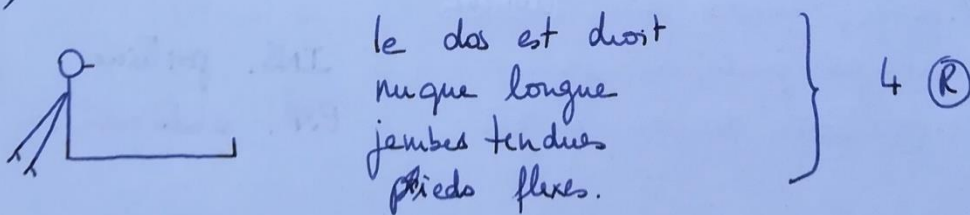 le dos est droit
nuque longue
jambes tendues
pieds flexes.
4 R